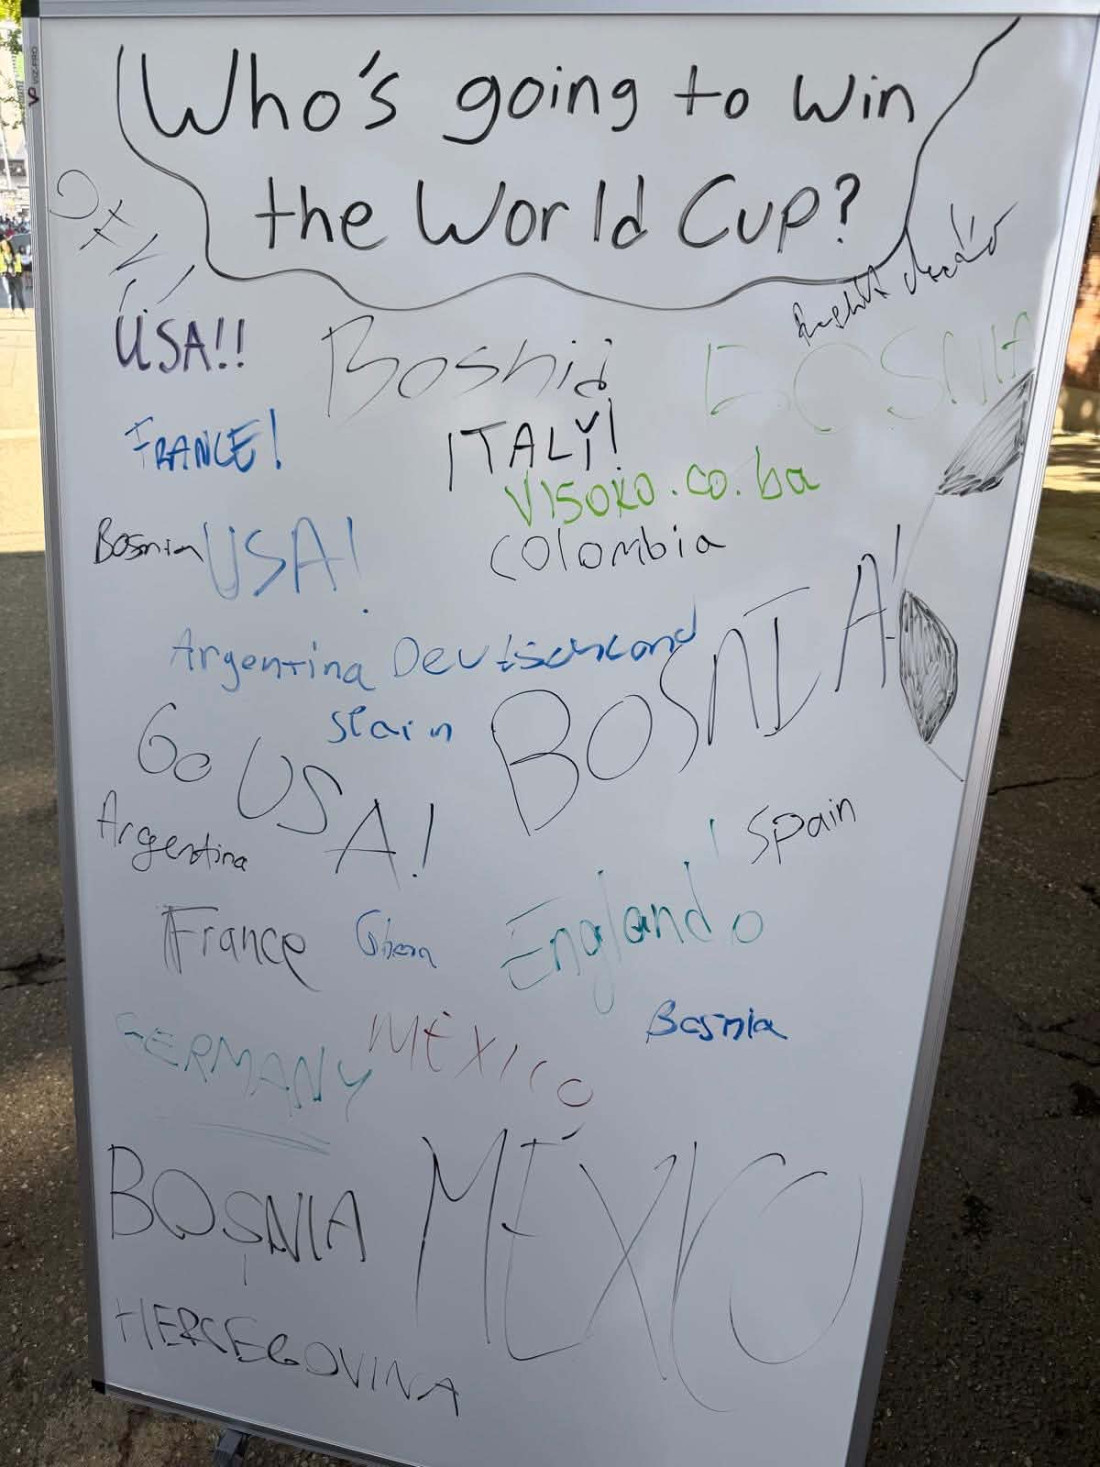 Who's going to win
the World Cup?
USA!!
Bosnia
BOSNIA
FRANCE!
ITALY!
VISOKO.co.ba
Bosnia
USA!
Colombia
Argentina
Deutschland
BOSNIA!
Spain
Go USA!
Argentina
Spain
France
Ghana
England
GERMANY
MÉXICO
Bosnia
BOSNIA
MÉXICO
HERCEGOVINA